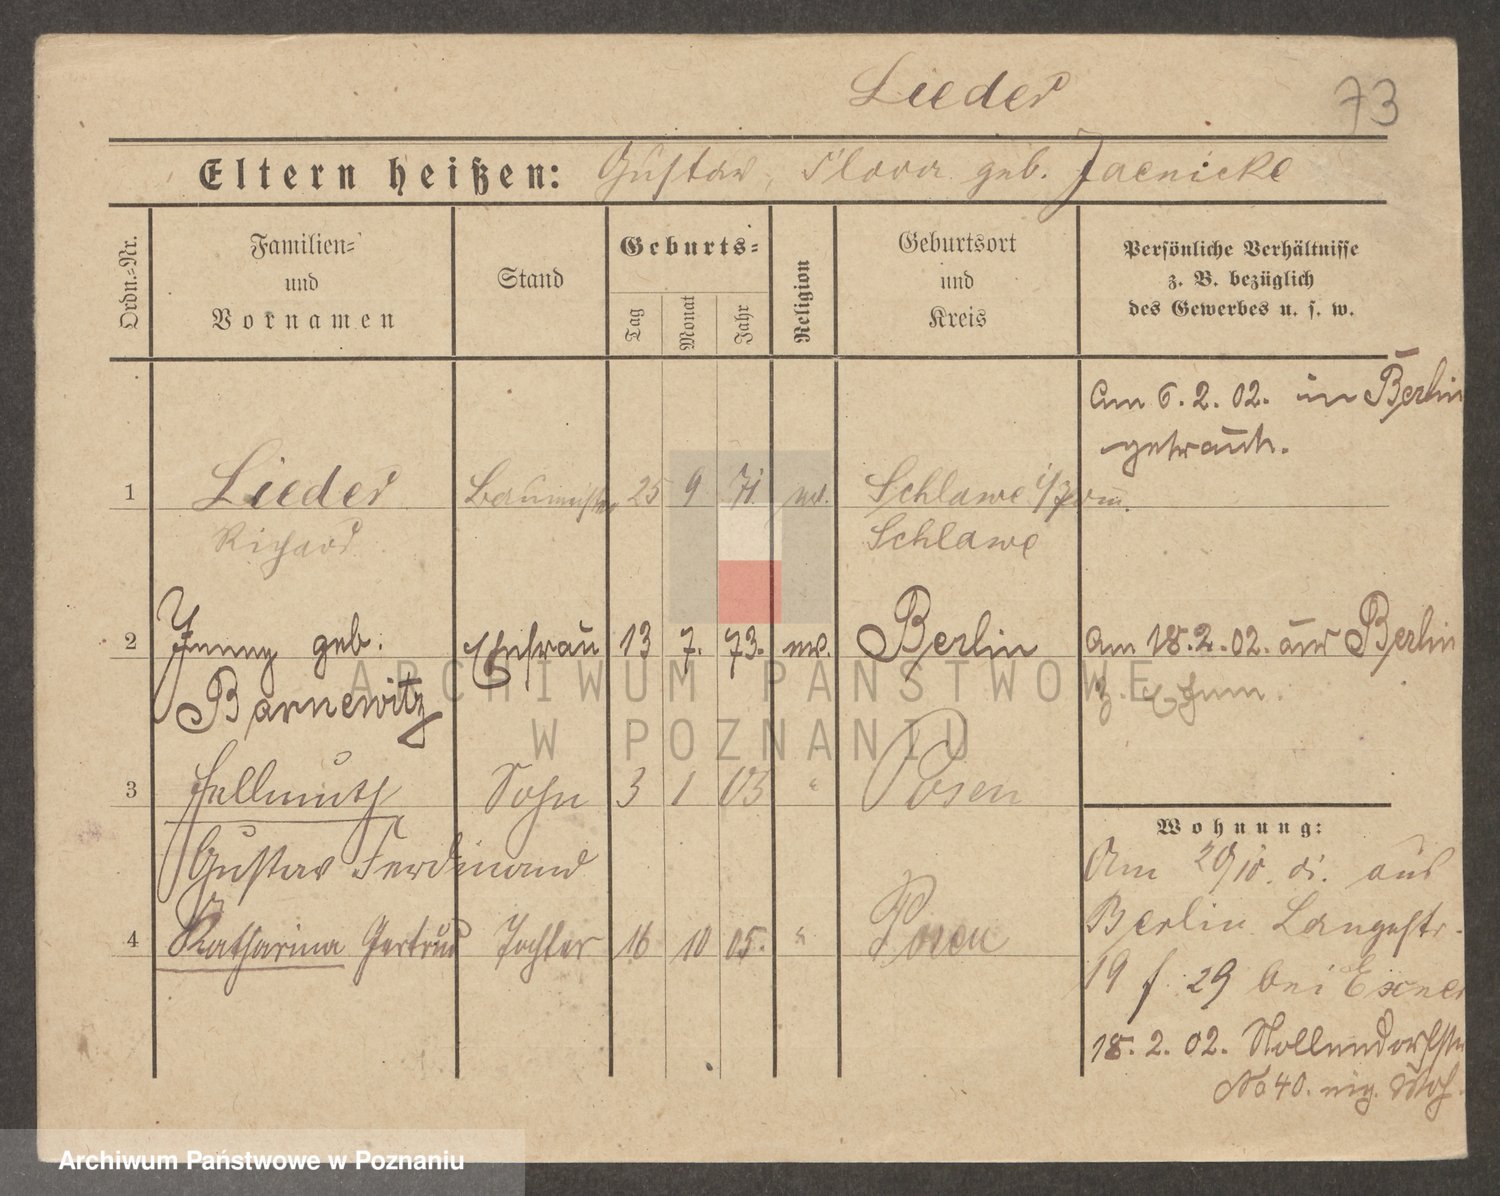 Lieder
73
Eltern heißen: Gustav, Flora geb. Jaenicke
Ordn.-Nr.
Familien-
und
Vornamen
Stand
Geburts-
Tag
Monat
Jahr
Religion
Geburtsort
und
Kreis
Persönliche Verhältnisse
z. B. bezüglich
des Gewerbes u. s. w.
Am 6. 2. 02. in Berlin
getraut.
1 Lieder Baumeister 25 9 71 ev. Schlawe i/Pom.
Richard Schlawe
2 Jenny geb. Ehefrau 13 7. 73. ev. Berlin Am 18. 2. 02. aus Berlin
Barnewitz z. Ehem.
3 Hellmuth Sohn 3 1 03 " Posen
Gustav Ferdinand
4 Katharina Gertrud Tochter 16 10 05. " Posen
Wohnung:
Am 29/10. 01. aus
Berlin Langestr.
19 f. 29 bei Exner
18. 2. 02. Nollendorfstr
No 40. eig. Woh.
ARCHIWUM PAŃSTWOWE
W POZNANIU
Archiwum Państwowe w Poznaniu